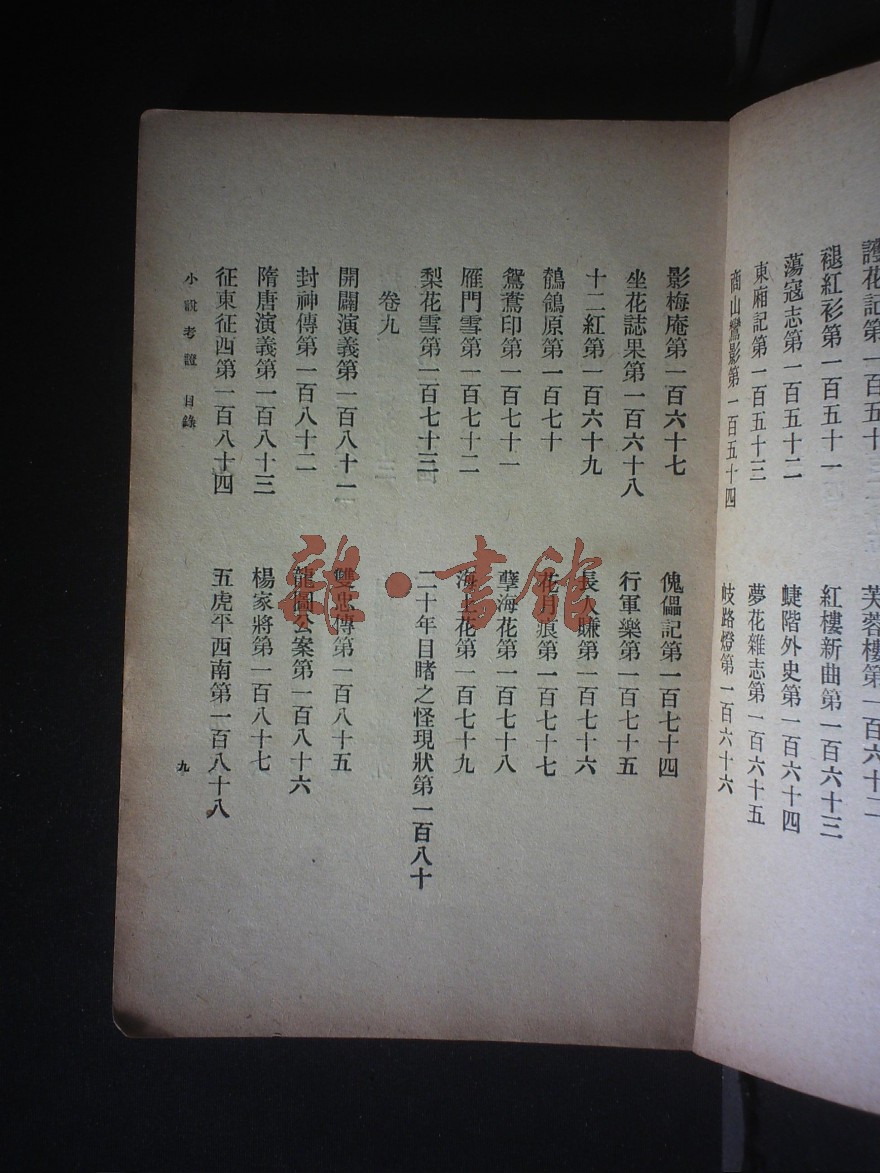 護花記第一百五十
褪紅衫第一百五十一
蕩寇志第一百五十二
東廂記第一百五十三
商山鸞影第一百五十四
芙蓉樓第一百六十二
紅樓新曲第一百六十三
蜨階外史第一百六十四
夢花雜志第一百六十五
岐路燈第一百六十六
影梅庵第一百六十七
坐花誌果第一百六十八
十二紅第一百六十九
鶺鴒原第一百七十
鴛鴦印第一百七十一
雁門雪第一百七十二
梨花雪第一百七十三
傀儡記第一百七十四
行軍樂第一百七十五
長人賺第一百七十六
花月痕第一百七十七
孽海花第一百七十八
海上花第一百七十九
二十年目睹之怪現狀第一百八十
卷九
開闢演義第一百八十一
封神傳第一百八十二
隋唐演義第一百八十三
征東征西第一百八十四
雙忠傳第一百八十五
龍圖公案第一百八十六
楊家將第一百八十七
五虎平西南第一百八十八
小說考證 目錄
九
雜·書館